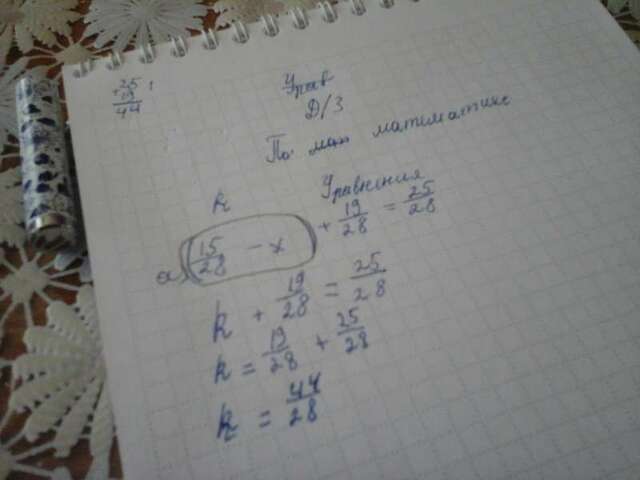 25
+ 19
44
Урав
Д/З
По мат математике
k Уравнения
а) (15/28 - x) + 19/28 = 25/28
k + 19/28 = 25/28
k = 19/28 + 25/28
k = 44/28